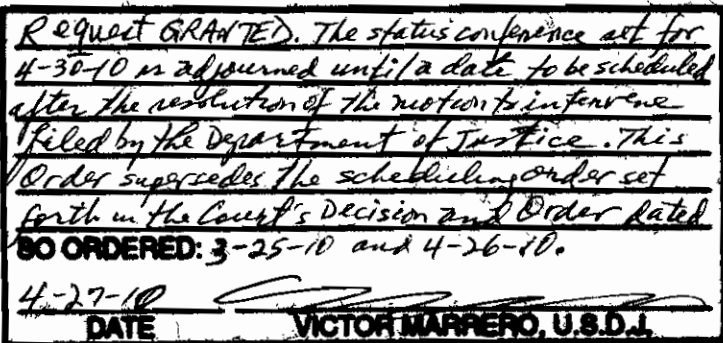 Request GRANTED. The status conference set for
4-30-10 is adjourned until a date to be scheduled
after the resolution of the motion to intervene
filed by the Department of Justice. This
Order supersedes the scheduling order set
forth in the Court's Decision and Order dated
SO ORDERED: 3-25-10 and 4-26-10.
4-27-10
DATE VICTOR MARRERO, U.S.D.J.